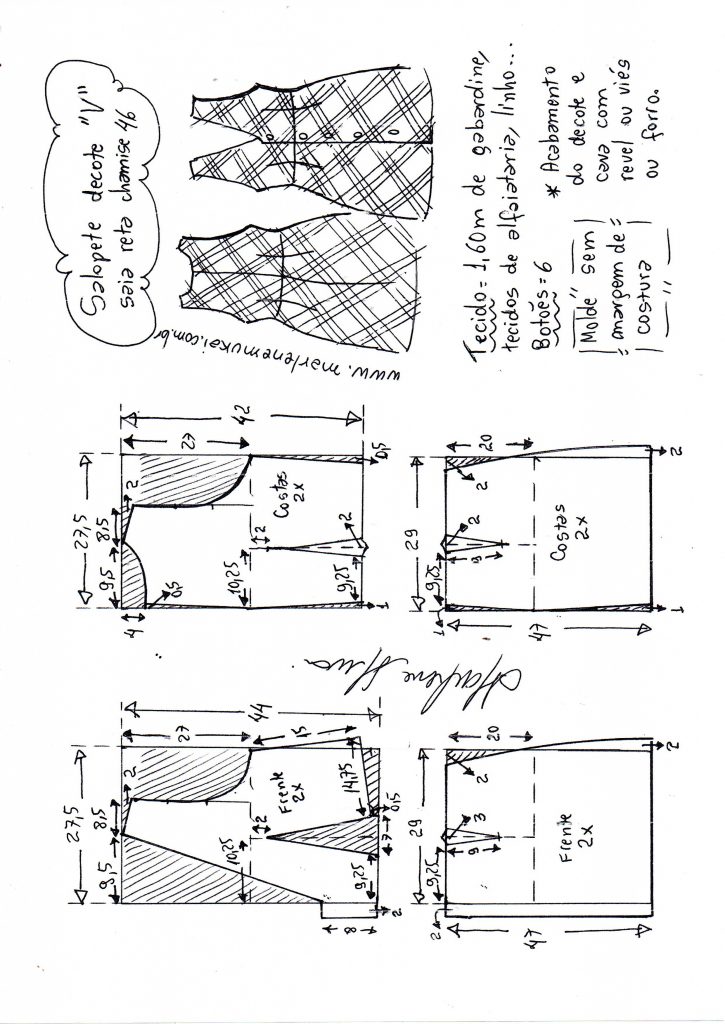 Salopete decote "V"
saia reta chamise 46
www.marlenemukai.com.br
Tecido = 1,60m de gabardine,
tecidos de alfaiataria, linho...
Botões = 6
* Acabamento
do decote e
cava com
revel ou viés
ou forro.
Molde sem
margem de
costura
27,5
9,5
8,5
2
27
44
10,25
2
Frente
2x
15
14,75
9,25
7
0,5
8
2
27,5
9,5
8,5
2
4
0,5
27
42
10,25
2
Costas
2x
9,25
2
1
0,5
Marlene Mukai
29
2
9,25
3
9
2
20
47
Frente
2x
2
29
1
9,25
2
9
2
20
47
Costas
2x
1
2